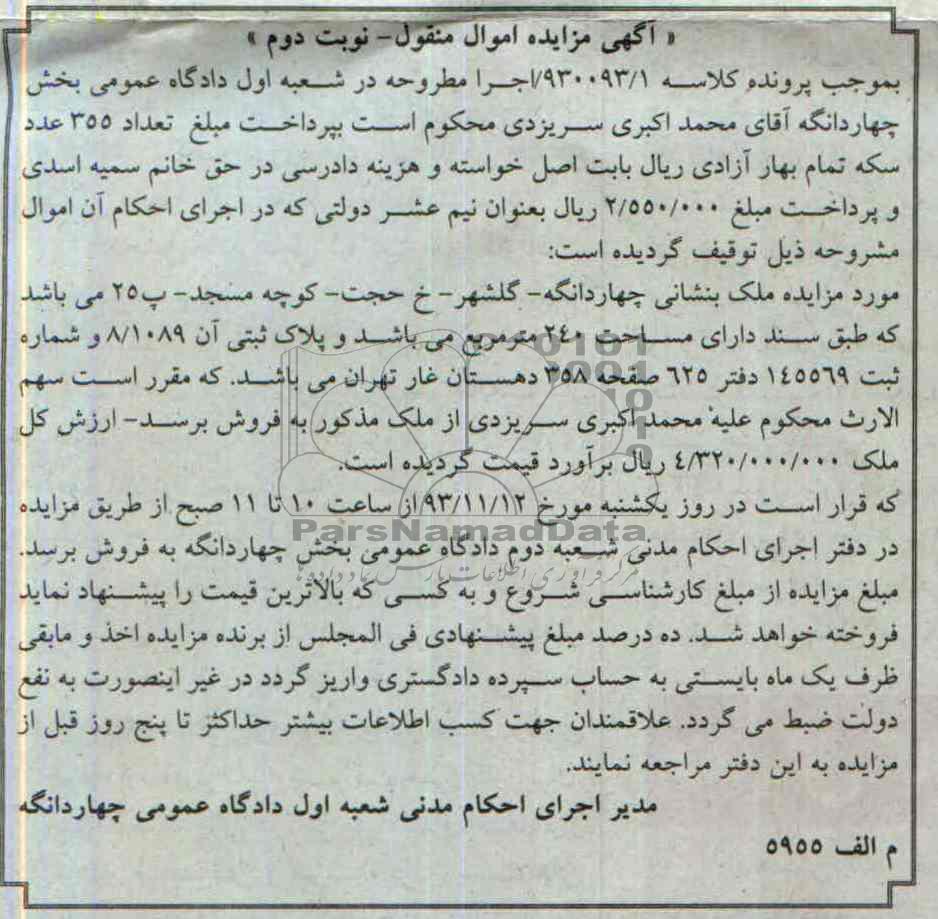 « آگهی مزایده اموال منقول- نوبت دوم »
بموجب پرونده کلاسه ۹۳۰۰۹۳/۱/اجرا مطروحه در شعبه اول دادگاه عمومی بخش
چهاردانگه آقای محمد اکبری سریزدی محکوم است بپرداخت مبلغ تعداد ۳۵۵ عدد
سکه تمام بهار آزادی ریال بابت اصل خواسته و هزینه دادرسی در حق خانم سمیه اسدی
و پرداخت مبلغ ۲/۵۵۰/۰۰۰ ریال بعنوان نیم عشر دولتی که در اجرای احکام آن اموال
مشروحه ذیل توقیف گردیده است:
مورد مزایده ملک بنشانی چهاردانگه- گلشهر- خ حجت- کوچه مسجد- پ۲۵ می باشد
که طبق سند دارای مساحت ۲۴۰ مترمربع می باشد و پلاک ثبتی آن ۸/۱۰۸۹ و شماره
ثبت ۱۴۵۵۶۹ دفتر ۶۲۵ صفحه ۳۵۸ دهستان غار تهران می باشد. که مقرر است سهم
الارث محکوم علیه محمد اکبری سریزدی از ملک مذکور به فروش برسد- ارزش کل
ملک ۴/۳۲۰/۰۰۰/۰۰۰ ریال برآورد قیمت گردیده است.
که قرار است در روز یکشنبه مورخ ۹۳/۱۱/۱۲ از ساعت ۱۰ تا ۱۱ صبح از طریق مزایده
در دفتر اجرای احکام مدنی شعبه دوم دادگاه عمومی بخش چهاردانگه به فروش برسد.
مبلغ مزایده از مبلغ کارشناسی شروع و به کسی که بالاترین قیمت را پیشنهاد نماید
فروخته خواهد شد. ده درصد مبلغ پیشنهادی فی المجلس از برنده مزایده اخذ و مابقی
ظرف یک ماه بایستی به حساب سپرده دادگستری واریز گردد در غیر اینصورت به نفع
دولت ضبط می گردد. علاقمندان جهت کسب اطلاعات بیشتر حداکثر تا پنج روز قبل از
مزایده به این دفتر مراجعه نمایند.
مدیر اجرای احکام مدنی شعبه اول دادگاه عمومی چهاردانگه
م الف ۵۹۵۵
ParsNamadData